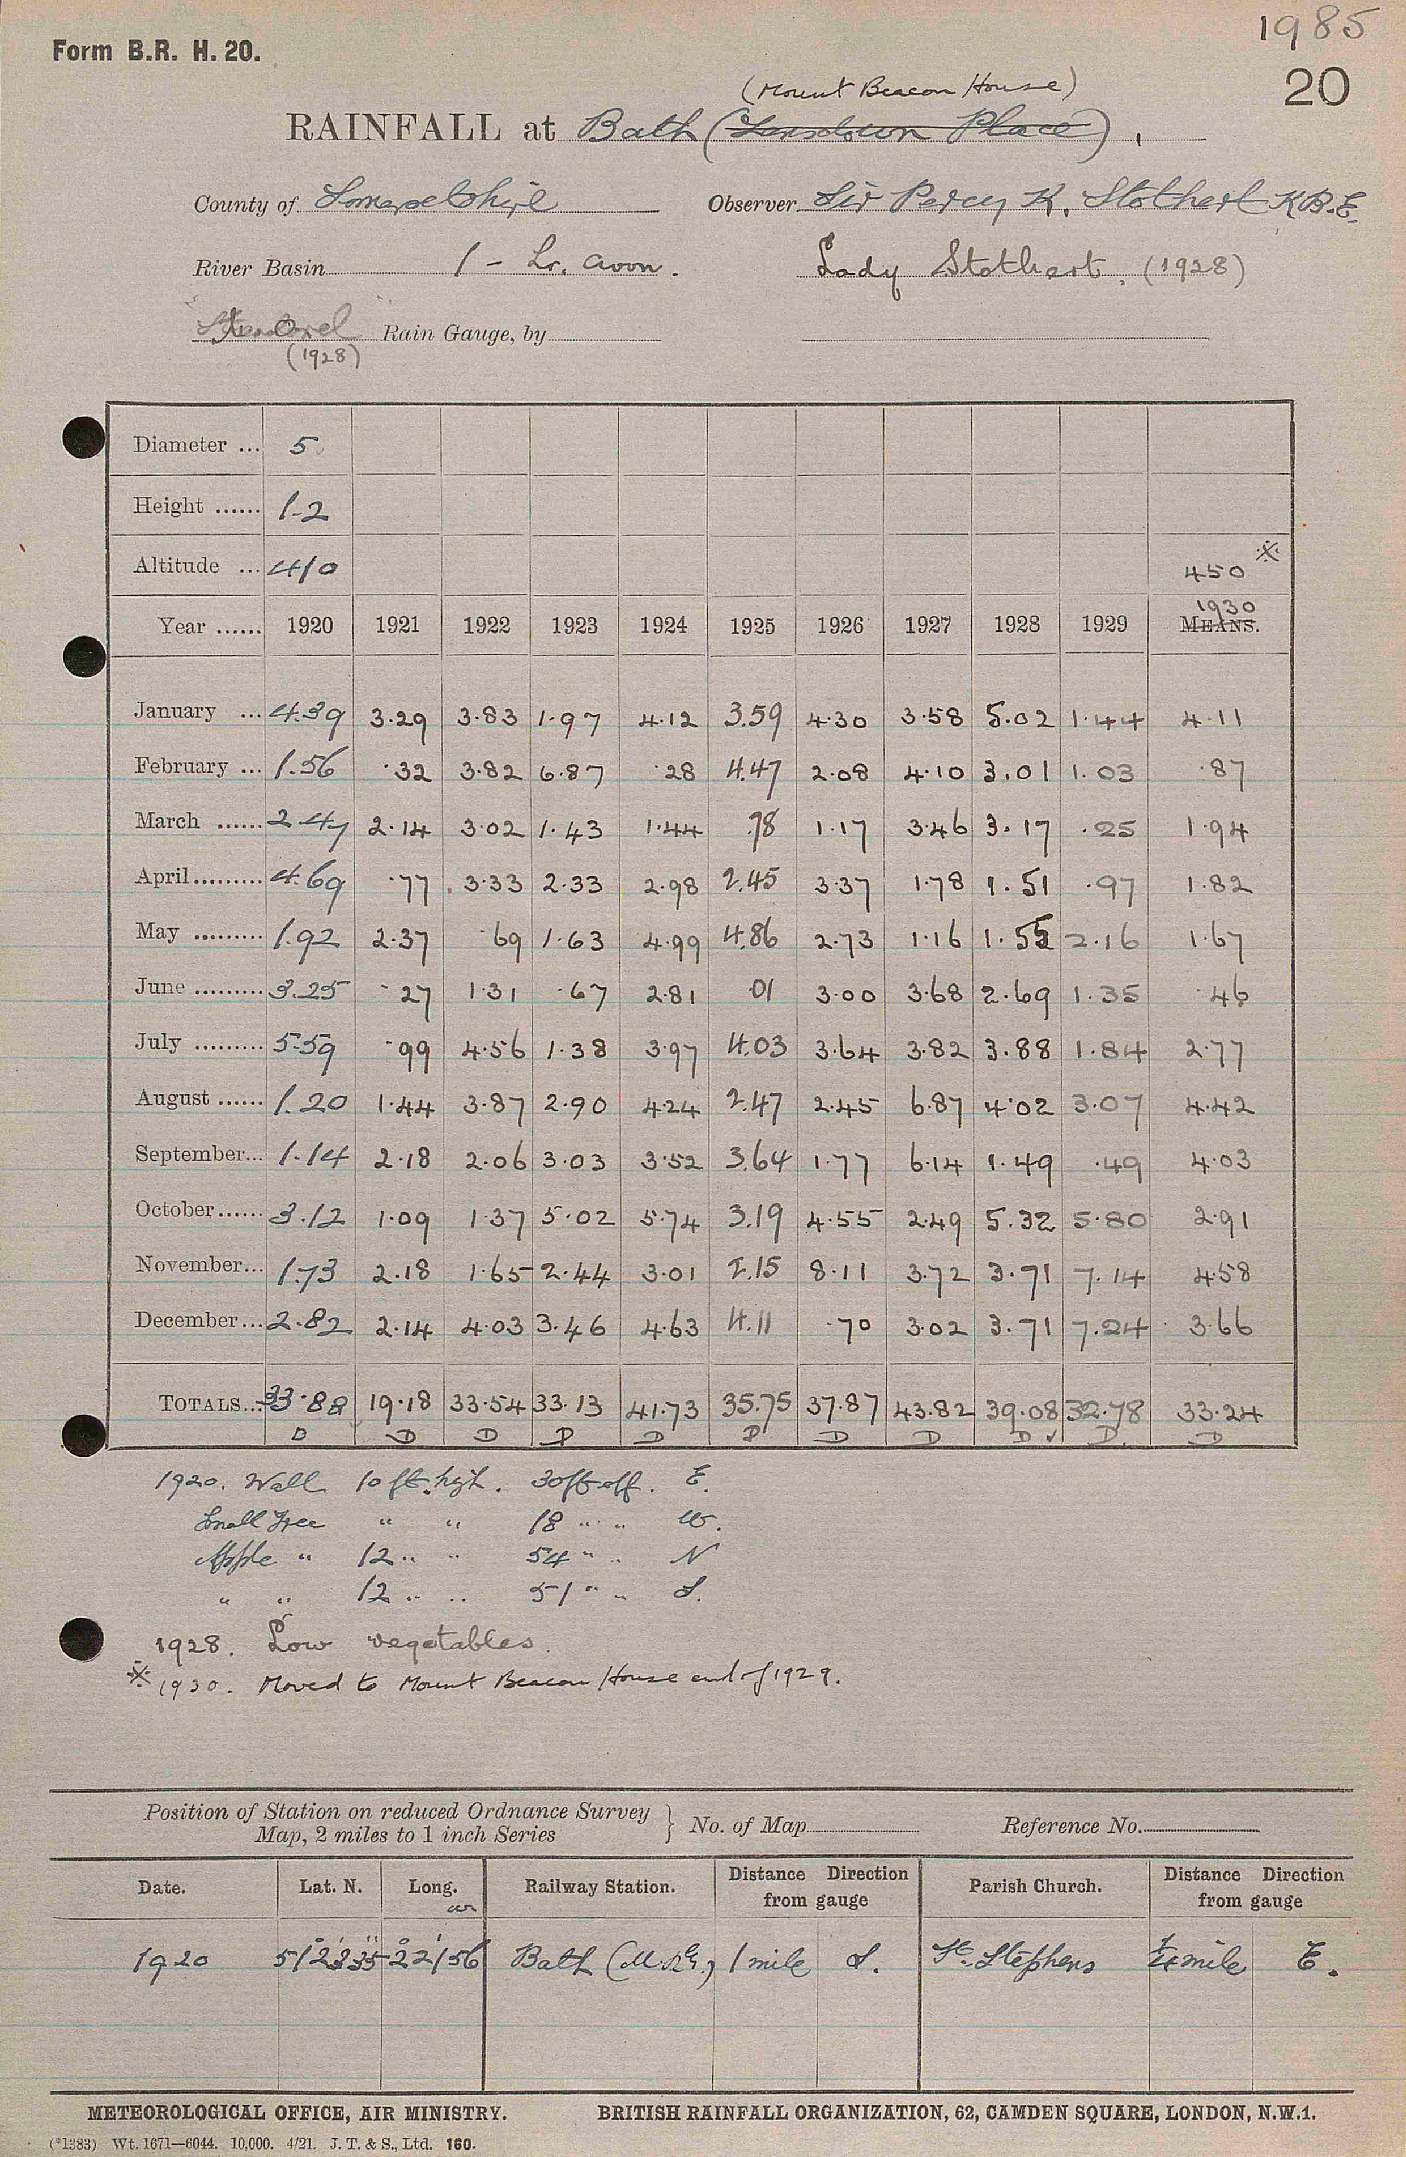 1985
Form B.R. H. 20.
20
(Mount Beacon House)
RAINFALL at Bath (Lansdown Place),
County of Somersetshire Observer Sir Percy K. Stothert K.B.E.
River Basin 1 - Lr. Avon. Lady Stothert. (1928)
Rain Gauge, by
(1928)
Diameter ... 5
Height ...... 1-2
Altitude ... 410 450 ※
1930
Year ...... 1920 1921 1922 1923 1924 1925 1926 1927 1928 1929 MEANS.
January ... 4.39 3.29 3.83 1.97 4.12 3.59 4.30 3.58 5.02 1.44 4.11
February ... 1.56 .32 3.82 6.87 .28 4.47 2.08 4.10 3.01 1.03 .87
March ...... 2.47 2.14 3.02 1.43 1.44 .78 1.17 3.46 3.17 .25 1.94
April......... 4.69 .77 3.33 2.33 2.98 2.45 3.37 1.78 1.51 .97 1.82
May ......... 1.92 2.37 .69 1.63 4.99 4.86 2.73 1.16 1.55 2.16 1.67
June ......... 3.25 .27 1.31 .67 2.81 .01 3.00 3.68 2.69 1.35 .46
July ......... 5.59 .99 4.56 1.38 3.97 4.03 3.64 3.82 3.88 1.84 2.77
August ...... 1.20 1.44 3.87 2.90 4.24 2.47 2.45 6.87 4.02 3.07 4.42
September... 1.14 2.18 2.06 3.03 3.52 3.64 1.77 6.14 1.49 .49 4.03
October...... 3.12 1.09 1.37 5.02 5.74 3.19 4.55 2.49 5.32 5.80 2.91
November... 1.73 2.18 1.65 2.44 3.01 2.15 8.11 3.72 3.71 7.14 4.58
December... 2.82 2.14 4.03 3.46 4.63 4.11 .70 3.02 3.71 7.24 3.66
TOTALS... 33.88 19.18 33.54 33.13 41.73 35.75 37.87 43.82 39.08 32.78 33.24
D D D D D D D D D ✓ D. D
1920. Wall 10 ft. high. 30 ft off. E.
Small Tree " " 18 " " W.
Apple " 12 " " 54 " " N
" " 12 " " 51 " " S.
1928. Low vegetables.
※ 1930. Moved to Mount Beacon House end of 1929.
Position of Station on reduced Ordnance Survey
Map, 2 miles to 1 inch Series } No. of Map Reference No.
Date. Lat. N. Long. W Railway Station. Distance Direction from gauge Parish Church. Distance Direction from gauge
1920 51°23'35" 2°21'56 Bath (M.Ry.) 1 mile S. St. Stephens ¼ mile E.
METEOROLOGICAL OFFICE, AIR MINISTRY. BRITISH RAINFALL ORGANIZATION, 62, CAMDEN SQUARE, LONDON, N.W.1.
(*1383) Wt. 1671—6044. 10,000. 4/21. J. T. & S., Ltd. 160.